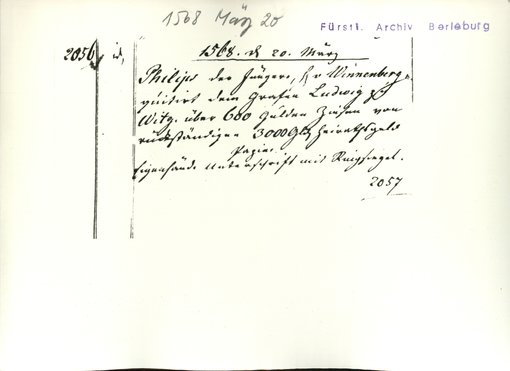 1568 März 20
Fürstl. Archiv Berleburg
2056
1568. d 20. März
Philips der Jüngere, H v Winnenberg,
quitirt dem Grafen Ludwig z
Witg. über 600 Gulden Zinsen von
rückständigen 3000 Heirathsgeld
Papier
Eigenhänd. Unterschrift mit Ringsiegel.
2057